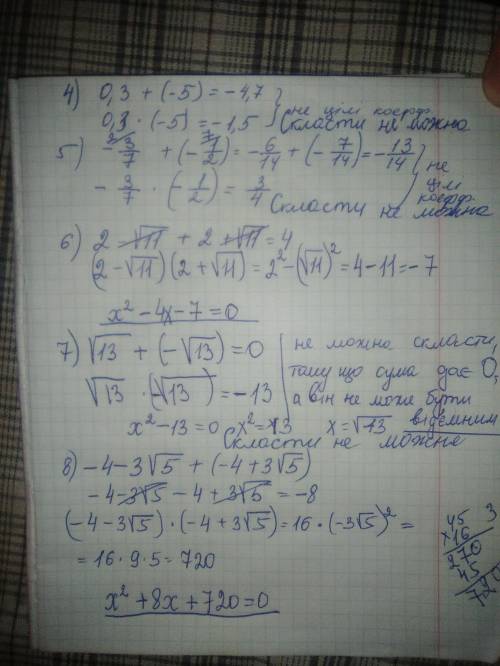 4) 0,3 + (-5) = -4,7
0,3 · (-5) = -1,5 не цілі коефф. Скласти не можна
5) -3/7 + (-1/2) = -6/14 + (-7/14) = -13/14 не цілі коефф.
-3/7 · (-1/2) = 3/4 Скласти не можна
6) 2 - √11 + 2 + √11 = 4
(2 - √11)(2 + √11) = 2² - (√11)² = 4 - 11 = -7
x² - 4x - 7 = 0
7) √13 + (-√13) = 0 не можна скласти,
√13 · (-√13) = -13 тому що сума дає 0,
а він не може бути
x² - 13 = 0 x² = 13 x = √13 відємним
Скласти не можна
8) -4 - 3√5 + (-4 + 3√5)
-4 - 3√5 - 4 + 3√5 = -8
(-4 - 3√5) · (-4 + 3√5) = 16 · (-3√5)² =
= 16 · 9 · 5 = 720
x² + 8x + 720 = 0
45
x16
270
45
720
3